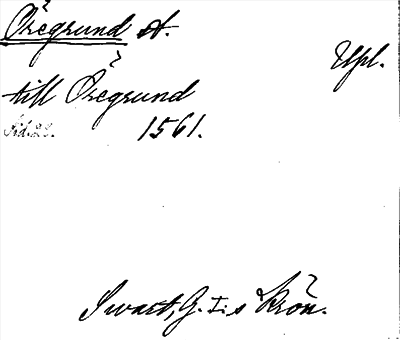 Öregrund st.
Upl.
till Öregrund
Sid. 22. 1561.
Swart, G. I:s Krön.